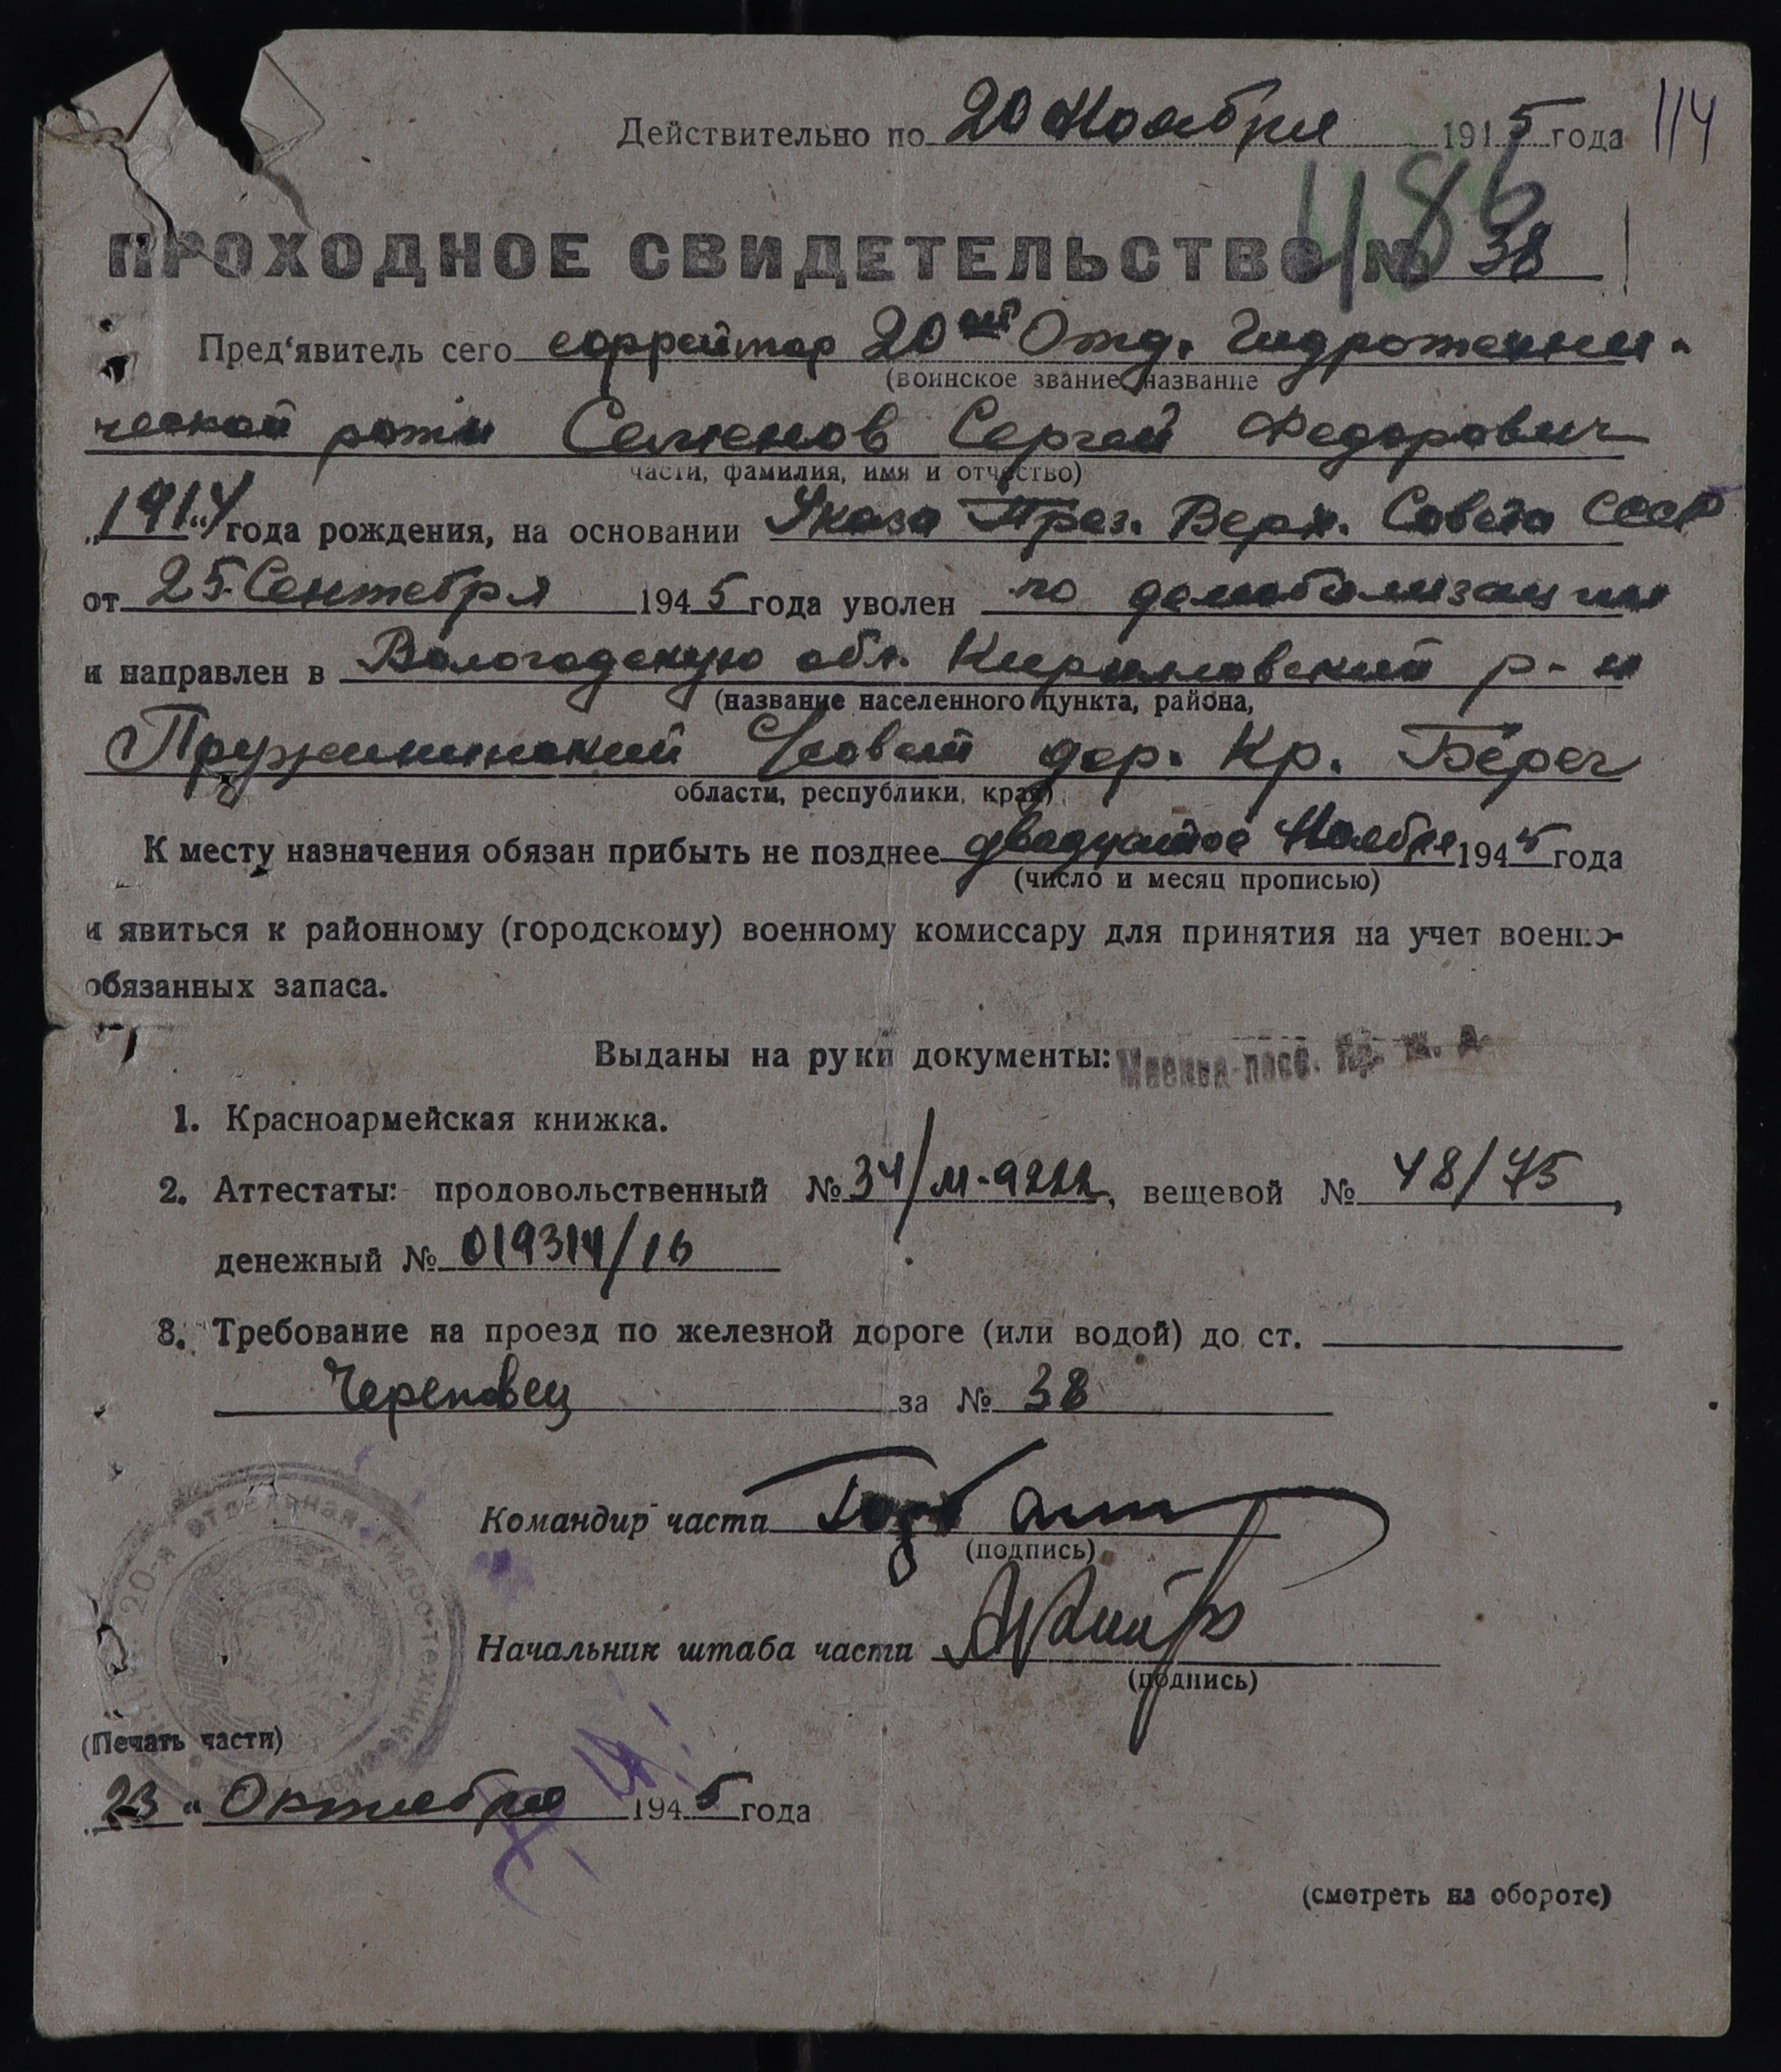 114
Действительно по 20 Ноября 1945 года
486
ПРОХОДНОЕ СВИДЕТЕЛЬСТВО № 38
Пред'явитель сего ефрейтор 20ой Отд. Гидротехни-
(воинское звание, название
ческой роты Семенов Сергей Федорович
части, фамилия, имя и отчество)
„1914“ года рождения, на основании Указа През. Верх. Совета СССР
от 25 Сентября 1945 года уволен по демобилизации
и направлен в Вологодскую обл. Кирилловский р-н
(название населенного пункта, района,
Пружининский С/совет дер. Кр. Берег
области, республики, края)
К месту назначения обязан прибыть не позднее двадцатое Ноября 1945 года
(число и месяц прописью)
и явиться к районному (городскому) военному комиссару для принятия на учет военно-
обязанных запаса.
Выданы на руки документы:
Москва-пасс. ж. д.
1. Красноармейская книжка.
2. Аттестаты: продовольственный № 34/М-9222, вещевой № 48/45,
денежный № 019314/16
3. Требование на проезд по железной дороге (или водой) до ст.
Череповец за № 38
20-я отдельная гидро-техническая
Командир части
(подпись)
Начальник штаба части
(подпись)
(Печать части)
„23“ Октября 1945 года
(смотреть на обороте)